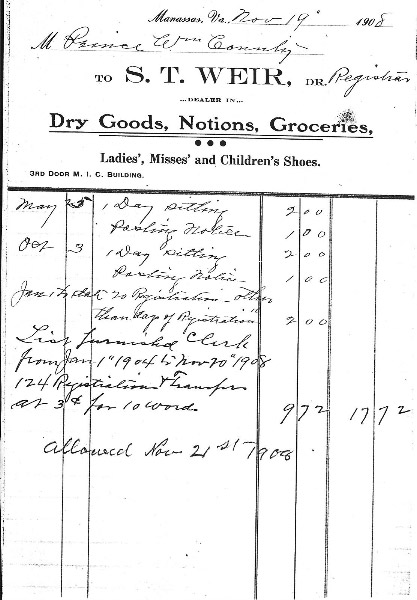 Manassas, Va. Nov 19" 1908
M Prince Wm County
TO S. T. WEIR, DR. Registrar
...DEALER IN...
Dry Goods, Notions, Groceries,
Ladies', Misses' and Children's Shoes.
3RD DOOR M. I. C. BUILDING.
May 25 1 Day sitting 2 00
Posting Notice 1 00
Oct 3 1 Day sitting 2 00
Posting Notice 1 00
Jan 1 to date 20 Registration - other
than day of Registration" 2 00
List furnished Clerk
from Jan 1" 1904 to Nov 20" 1908
124 Registration & Transfers
at 3¢ for 10 words 9 72 17 72
allowed Nov 21st 1908